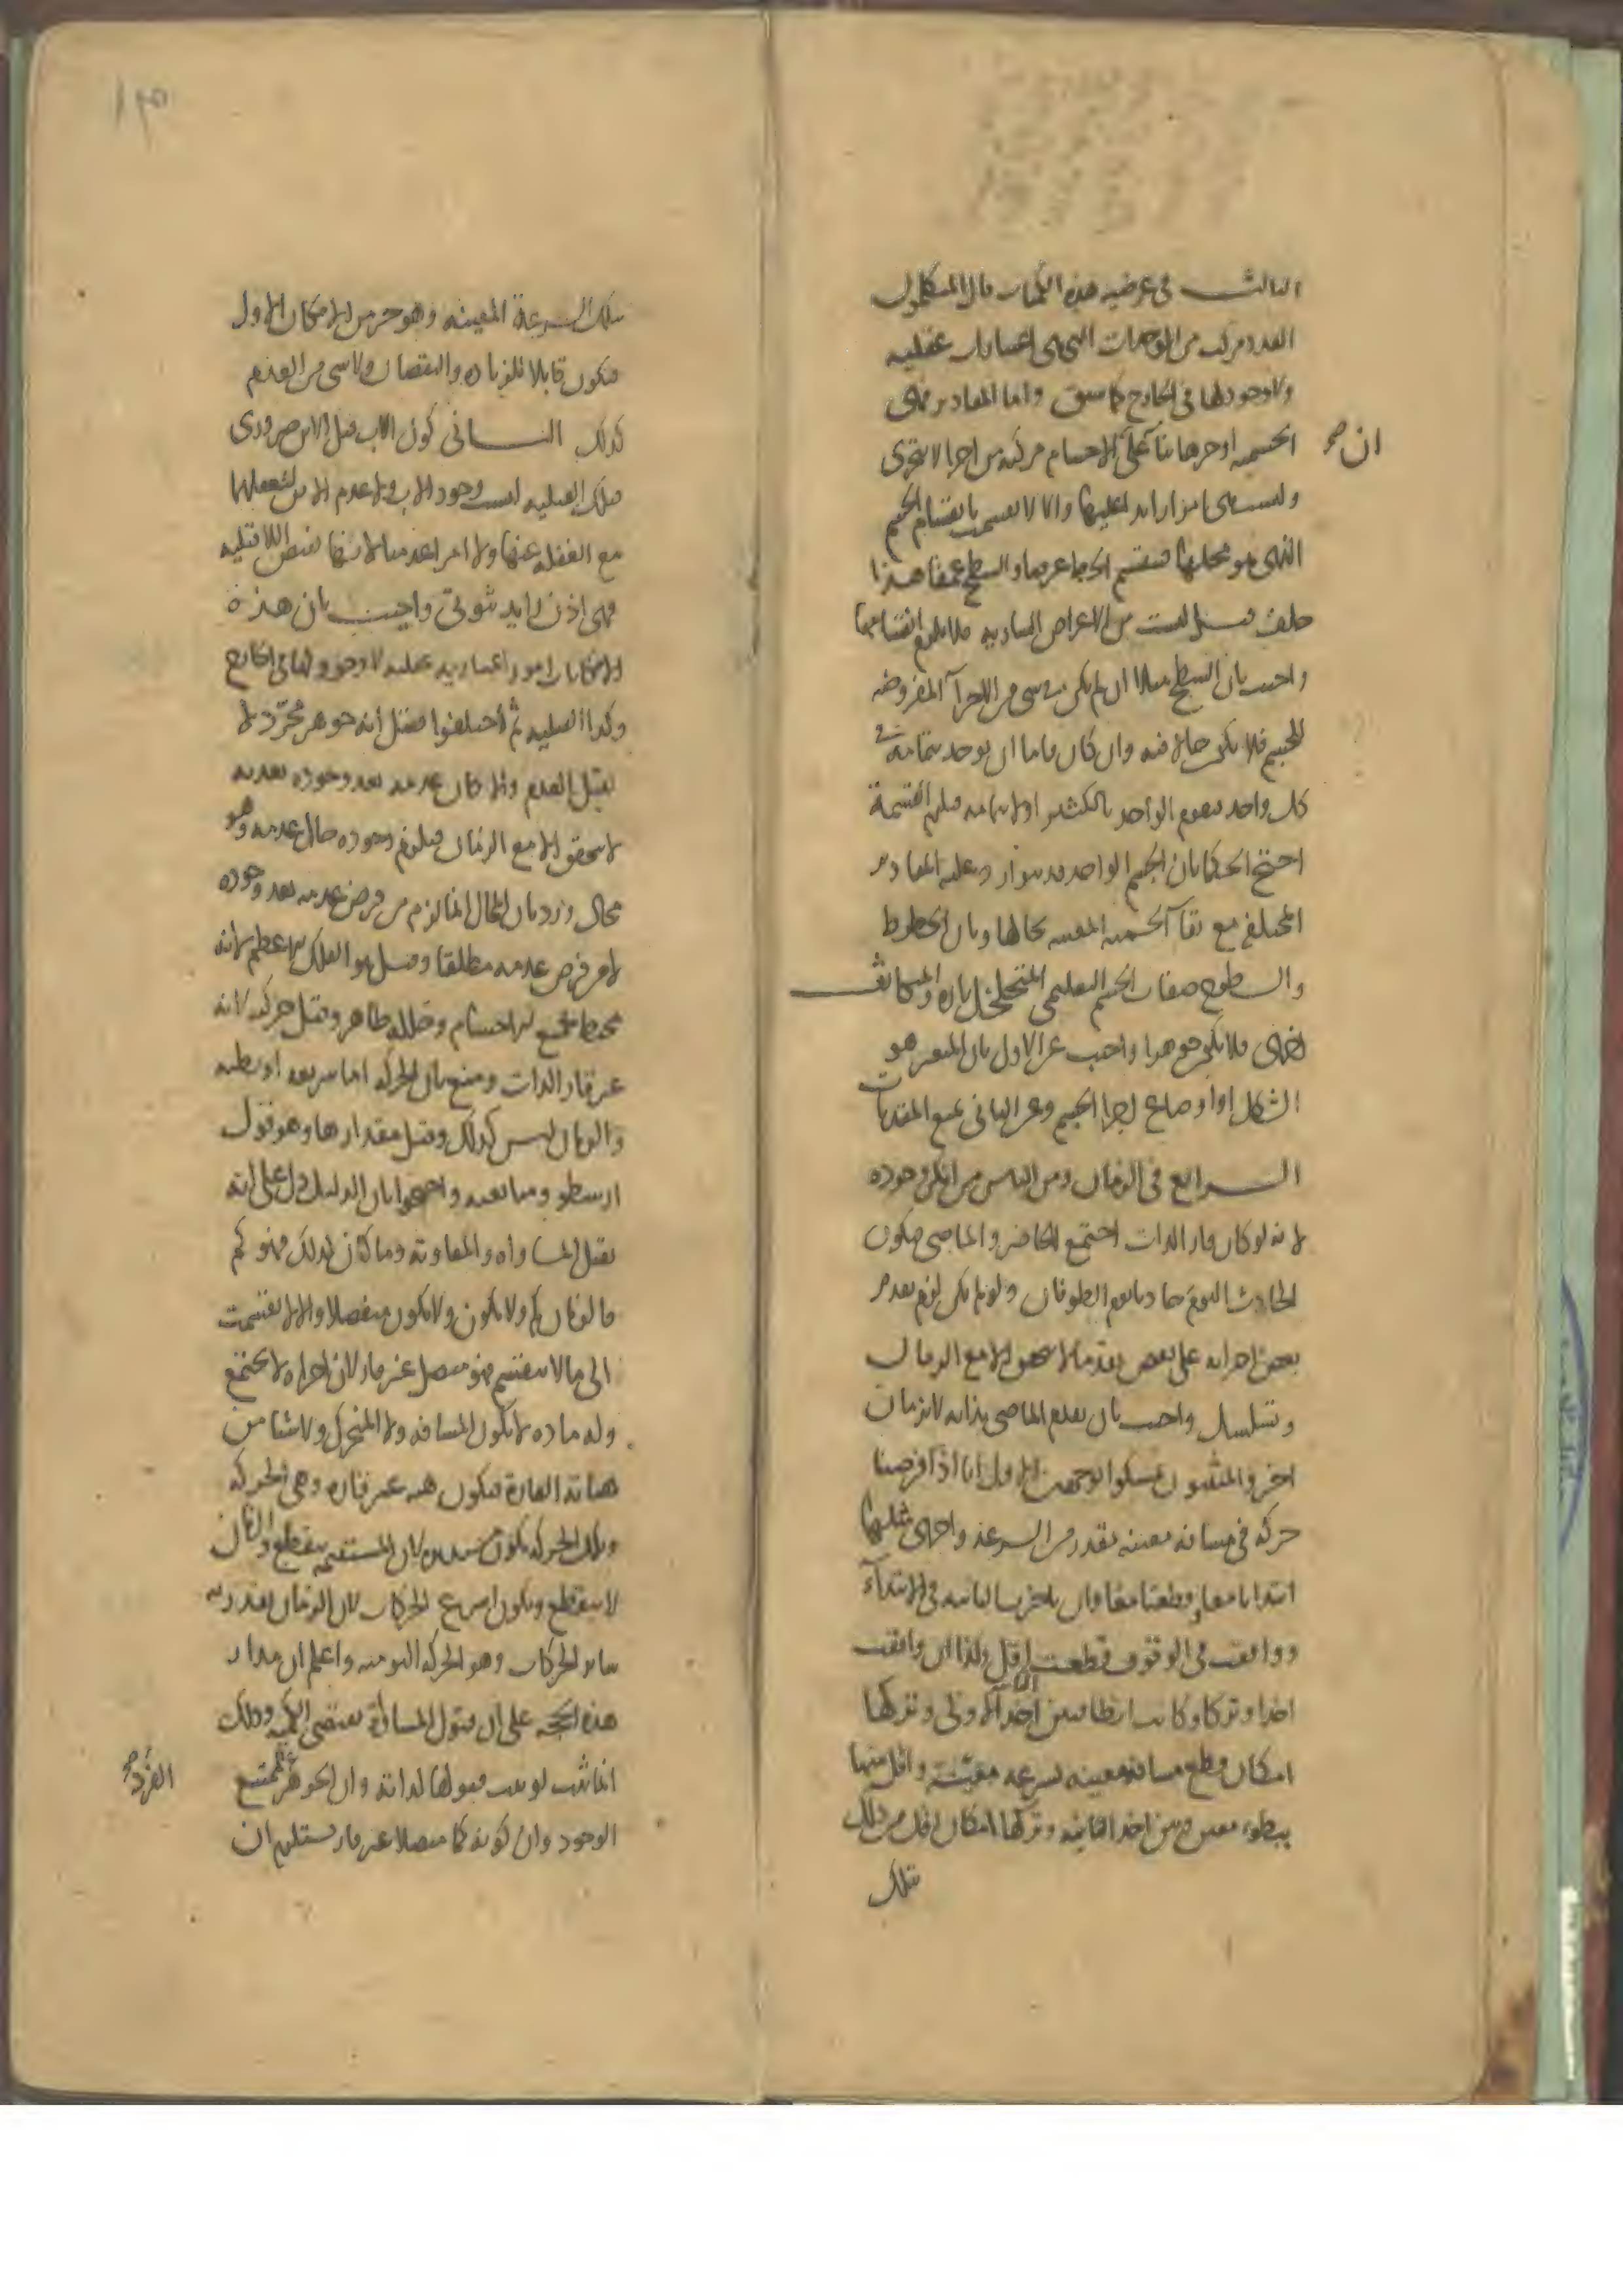 الثالث في عرضيه هذه الكميات قال المتكلمون
العدد مركب من الوحدات التي هي اعتبارات عقليه
ولا وجود لها في الخارج كما سبق واما المقادير فهي
الجسميه او جزءها بناء على ان الاجسام مركبه من اجزا لا تتجزى
ان صح
وليست هي امرا زايدا عليها والا لانقسمت بانقسام الجسم
الذي هو محلها فينقسم الخط عرضا والسطح عمقا هذا
خلف قيل ليست من الاعراض الساريه فلا يلزم انقسامها
واجيب بان السطح مثلا ان لم يكن في شي من الاجزآ المفروضه
للجسم فلا يكون حالا فيه وان كان فاما ان يوجد بتمامه في
كل واحد فيقوم الواحد بالكثير اولا بتمامه فيلزم القسمة
احتج الحكما بان الجسم الواحد قد يتوارد عليه المقادير
المختلفه مع بقآ الجسميه المعينه بحالها وبان الخطوط
والسطوح صفات الجسم التعليمي المتخلخل تاره والمتكاثف
اخرى فلا يكون جوهرا واجيب عن الاول بان المتغير هو
الشكل او اوضاع اجزا الجسم وعن الثاني بمنع المقدمات
الرابع في الزمان ومن الناس من انكر وجوده
لانه لو كان قار الذات اجتمع الحاضر والماضي فيكون
الحادث اليوم حادثا يوم الطوفان ولو لم يكن لزم تقدم
بعض اجزايه على بعض تقدما لا يتحقق الا مع الزمان
وتسلسل واجيب بان تقدم الماضي بذاته لا بزمان
اخر والمثبتون تمسكوا بوجهين الاول انا اذا فرضنا
حركة في مسافه معينه بقدر من السرعه واخرى مثلها
ابتدانا معا وقطعنا معا وان تاخرت الثانيه في الابتدآء
ووافقت في الوقوف قطعت اقل وكذا ان وافقت
اخذا وتركا وكانت ابطا فبين اخذ الاولى وتركها
امكان قطع مسافه معينه بسرعه معينة واقل منها
ببطوء معين وبين اخذ الثانيه وتركها امكان اقل من ذلك
تلك
بتلك السرعة المعينه وهو جزء من الامكان الاول
فيكون قابلا للزياده والنقصان ولا شي من العدم
كذلك الثاني كون الاب قبل الابن ضروري
وتلك القبليه ليست وجود الاب ولا عدم الابن لتعقلهما
مع الغفله عنها ولا امر اعدميا لانها نقيض اللاقبليه
فهي اذن زايد ثبوتي واجيب بان هذه
الامكانات امور اعتباريه عقليه لا وجود لها في الخارج
وكذا القبليه ثم اختلفوا فقيل انه جوهر مجرد لا
يقبل العدم والا كان عدمه بعد وجوده بعديه
لا يتحقق الا مع الزمان فيلزم وجوده حال عدمه وهو
محال ورد بان المحال انما لزم من فرض عدمه بعد وجوده
لا من فرض عدمه مطلقا وقيل هو الفلك الاعظم لانه
محيط بجميع الاجسام وخلله ظاهر وقيل حركته لانه
غير قار الذات ومنع بان الحركه اما سريعه او بطيه
والزمان ليس كذلك وقيل مقدارها وهو قول
ارسطو ومتابعيه واحتجوا بان الدليل دل على انه
يقبل المساواه والمفاوته وما كان كذلك فهو كم
فالزمان كم ولا يكون ولا يكون منفصلا والا لانقسمت
الى ما لا ينقسم فهو متصل غير قار لان اجزاه لا تجتمع
وله ماده لا تكون المسافه ولا المتحرك ولا شيا من
هياته القارة فيكون هيه غير قاره وهي الحركه
وتلك الحركه تكون مستديره لان المستقيمه ينقطع والزمان
لا ينقطع ويكون اسرع الحركات لان الزمان يقدر به
ساير الحركات وهو الحركه اليوميه واعلم ان مدار
هذه الحجه على ان قبول المساواة يقتضي الكميه وذلك
انما ثبت لو ثبت قبولها لذاته وان الجوهر ممتنع
الفرد صح
الوجود وان كونه كما متصلا غير قار يستلزم ان